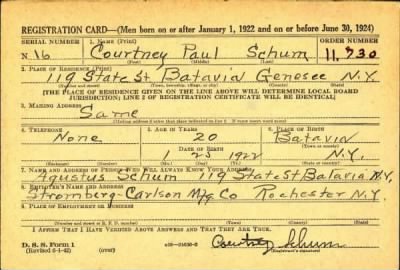 REGISTRATION CARD—(Men born on or after January 1, 1922 and on or before June 30, 1924)
SERIAL NUMBER 1. NAME (Print) ORDER NUMBER
N 16 Courtney Paul Schum 11,730
(First) (Middle) (Last)
2. PLACE OF RESIDENCE (Print)
119 State St Batavia Genesee N.Y.
(Number and street) (Town, township, village, or city) (County) (State)
[THE PLACE OF RESIDENCE GIVEN ON THE LINE ABOVE WILL DETERMINE LOCAL BOARD
JURISDICTION; LINE 2 OF REGISTRATION CERTIFICATE WILL BE IDENTICAL]
3. MAILING ADDRESS
Same
[Mailing address if other than place indicated on line 2. If same insert word same]
4. TELEPHONE 5. AGE IN YEARS 6. PLACE OF BIRTH
None 20 Batavia
DATE OF BIRTH (Town or county)
23 1922 N.Y.
(Exchange) (Number) (Mo.) (Day) (Yr.) (State or country)
7. NAME AND ADDRESS OF PERSON WHO WILL ALWAYS KNOW YOUR ADDRESS
Agustus Schum 119 State St Batavia N.Y.
8. EMPLOYER'S NAME AND ADDRESS
Stromberg Carlson Mfg Co Rochester N.Y.
9. PLACE OF EMPLOYMENT OR BUSINESS
(Number and street or R. F. D. number) (Town) (County) (State)
I AFFIRM THAT I HAVE VERIFIED ABOVE ANSWERS AND THAT THEY ARE TRUE.
D. S. S. Form 1
(Revised 6-1-42) Courtney Schum